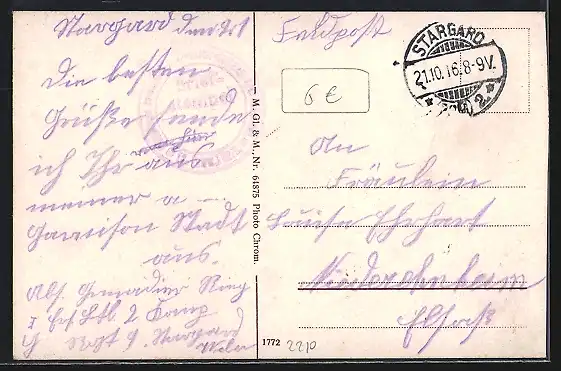 Stargard den
Die besten
Grüße sende
ich Ihr aus
meiner
Garnison Stadt
aus.
Abs. Grenadier
2
M. Gl. & M., Nr. 61875 Photo Chrom.
1772
2210
Feldpost
6 €
STARGARD
21.10.16.8-9V.
* 2 *
An
Fräulein
Louise Ehrhart
Niederehnheim
Elsaß